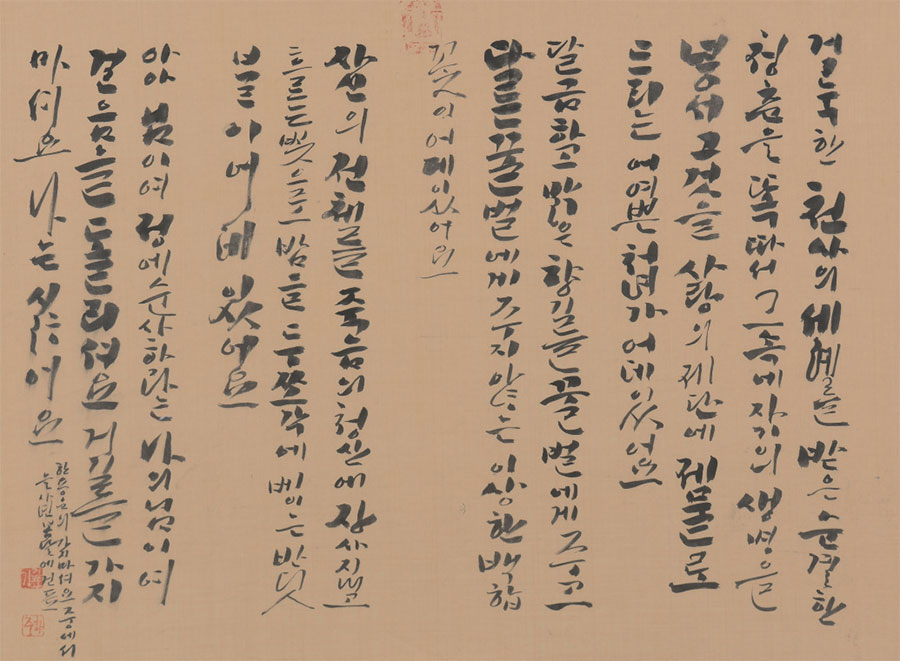 거룩한 천사의 세례를 받은 순결한
청춘을 똑 따서 그 속에 자기의 생명을
넣서 그것을 사랑의 제단에 제물로
드리는 어여쁜 처녀가 어데 있어요
달금하고 맑은 향기를 꿀벌에게 주고
다른 꿀벌에게 주지 않는 이상한 백합
꽃이 어데 있어요
자신의 전체를 죽음의 청산에 장사지내고
흐르는 빛으로 밤을 두 쪼각에 베이는 반딧
불이 어데 있어요
아아 님이여 정에 순사하랴는 나의 님이여
걸음을 돌리셔요 거기를 가지
마셔요 나는 싫어요
한용운의 가지마셔요 중에서